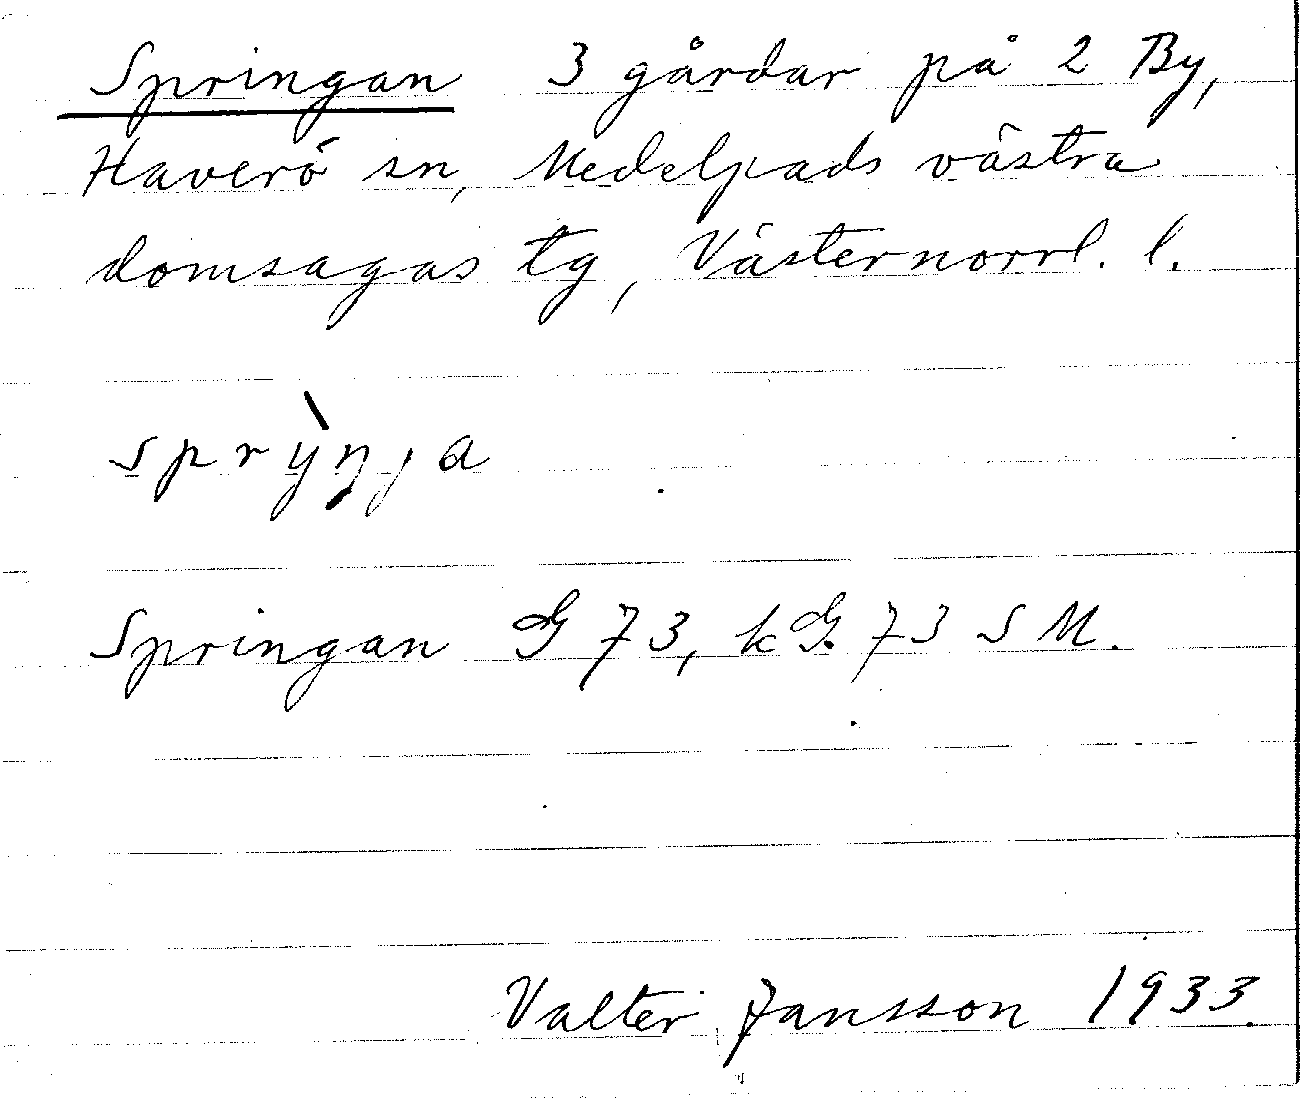 Springan 3 gårdar på 2 By,
Haverö sn, Medelpads västra
domsagas tg, Västernorrl. l.
sprỳŋja
Springan G 73, kG. 73 SM.
Valter Jansson 1933.